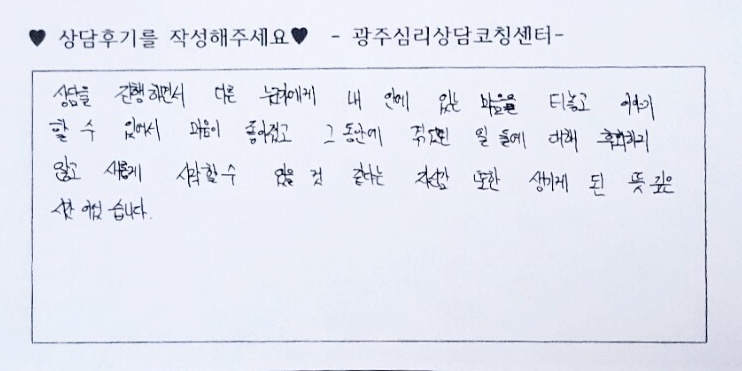 ♥ 상담후기를 작성해주세요♥ - 광주심리상담코칭센터-
상담을 진행하면서 다른 누군가에게 내 안에 있는 마음을 터놓고 이야기
할 수 있어서 마음이 좋아졌고 그동안에 일들에 대해 후회하지
않고 새롭게 시작할수 있을 것 같다는 자신감 또한 생기게 된 뜻깊은
시간 이었습니다.